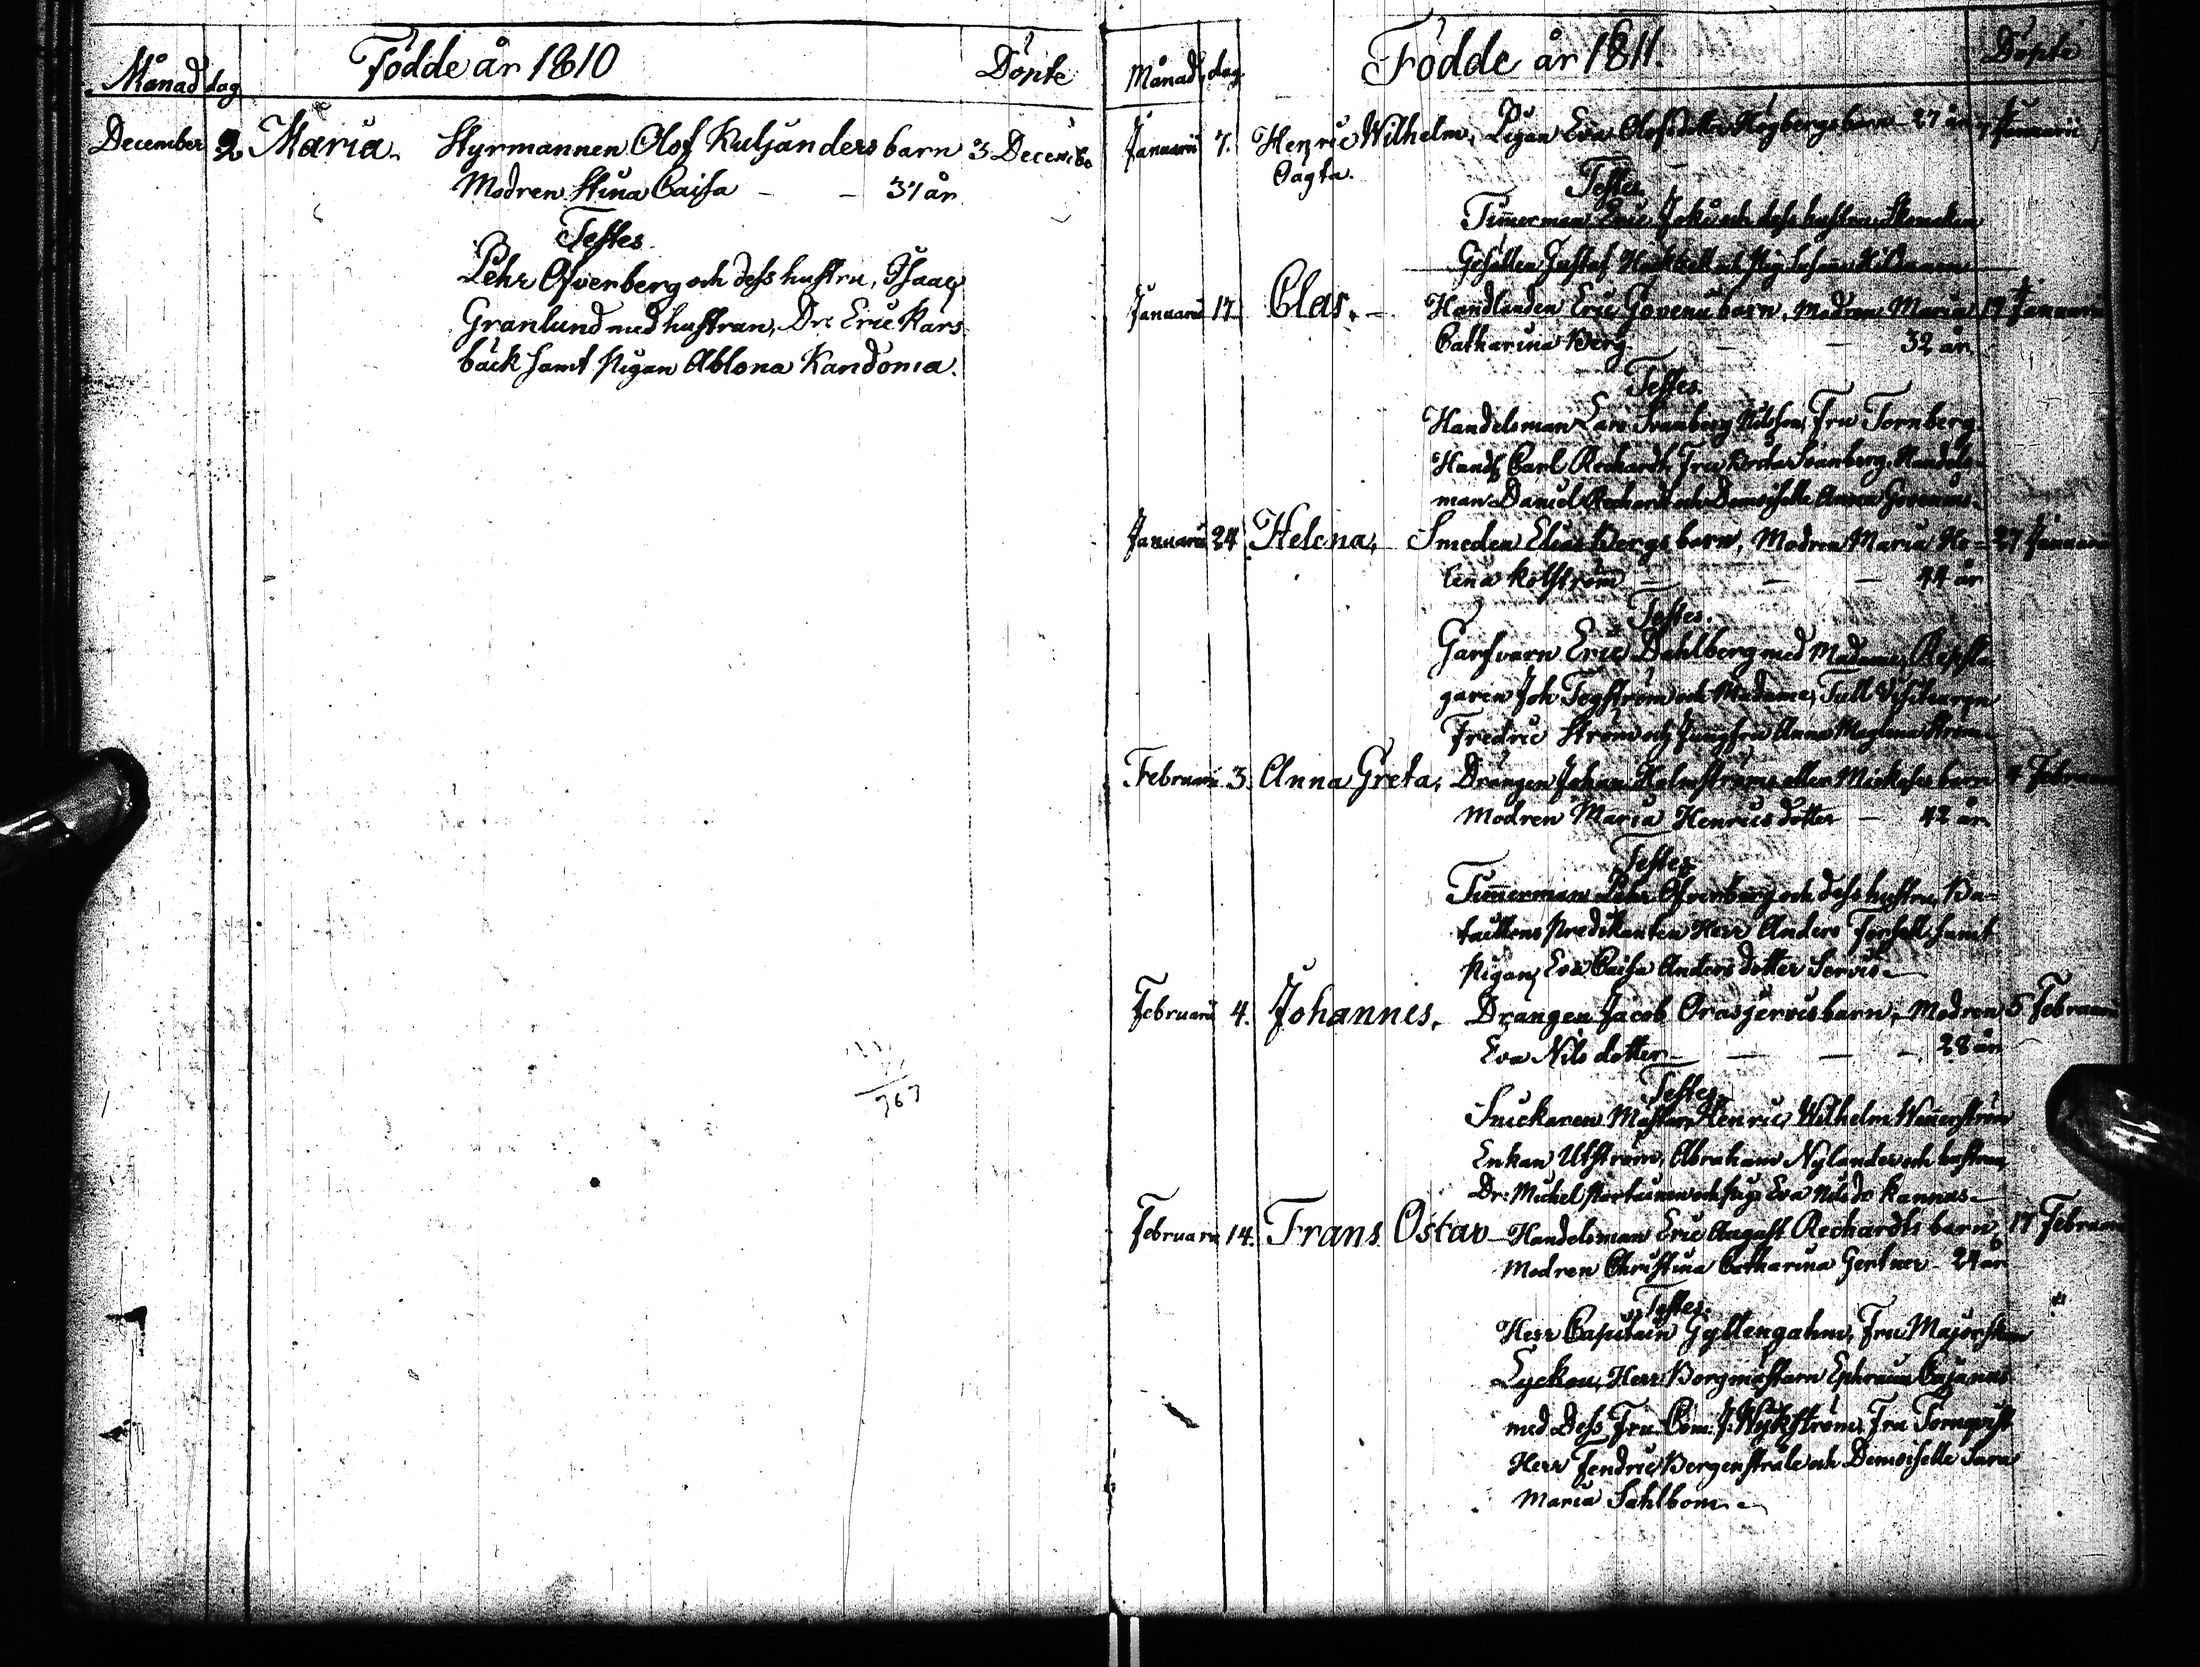 Månad dag Födde år 1810 Döpte
December 2 Maria. Styrmannen Olof Kuljanders barn 3 Decemb.
Modren Stina Caisa - - 37 år
Testes
Pehr Ofverberg och dess hustru, Isaac
Granlund med hustran, Dr: Eric Kars
bäck samt pigan Ablona Kandonia.
767
Månad dag Födde år 1811. Döpte
Januarii 7. Henric Wilhelm, Pigan Eva Olofsdotter Högbergs barn 27 år 7 Januarii
Oägta.
Testes
Timerman Eric och dess hustru,
Gesällen Gustaf och
Januarii 17 Clas. Handlanden Eric Govenii barn, Modren Maria 19 Januarii
Catharina Berg - - 32 år
Testes
Handelsman Lars Franberg Nilsson, Fru Tornberg
Handl Carl Rechardt, Fru Brita Svanberg, Handels-
man Daniel Rechardt och Demoiselle Anna Govenius.
Januarii 24 Helena, Smeden Elias Bergs barn, Modren Maria He- 27 Januarii
lena Kolström - - - 44 år
Testes.
Garfvarn Eric Dahlberg med Madame, Repsla
garen Joh Togström och Madame, Tull
Fredric Ström och Jungfru Anna Maglena Ström.
Februarii 3. Anna Greta, Drängen Johan Holmströms eller barn 4 Februarii
Modren Maria Henricsdotter - 42 år.
Testes
Timerman Pehr Ofverberg och dess hustru, Ba-
taillons predikanten Herr Anders Forsell samt
Pigan Eva Caisa Andersdotter
Februarii 4. Johannes, Drängen Jacob Orasjervis barn, Modren 5 Februarii
Eva Nils dotter - - - 28 år
Testes
Snickaren Mästarn Henric Wilhelm Wennerström
Enkan Utström, Abraham Nylander och hustrun,
Dr: Michel och pig: Eva Nils do Kannus
Februarii 14. Frans Ostav Handelsman Eric August Rechardts barn, 17 Februarii
Modren Christina Catharina Gertner - 24 år
Testes.
Herr Capitain Gyllengahm, Fru Majorskan
Lyckou, Herr Borgmästarn Ephraim Cajanus
med Dess Fru Com: J. Nykström, Fru Tornqvist
Herr Fendric Bergenstråle och Demoiselle Sara
Maria Sahlbom